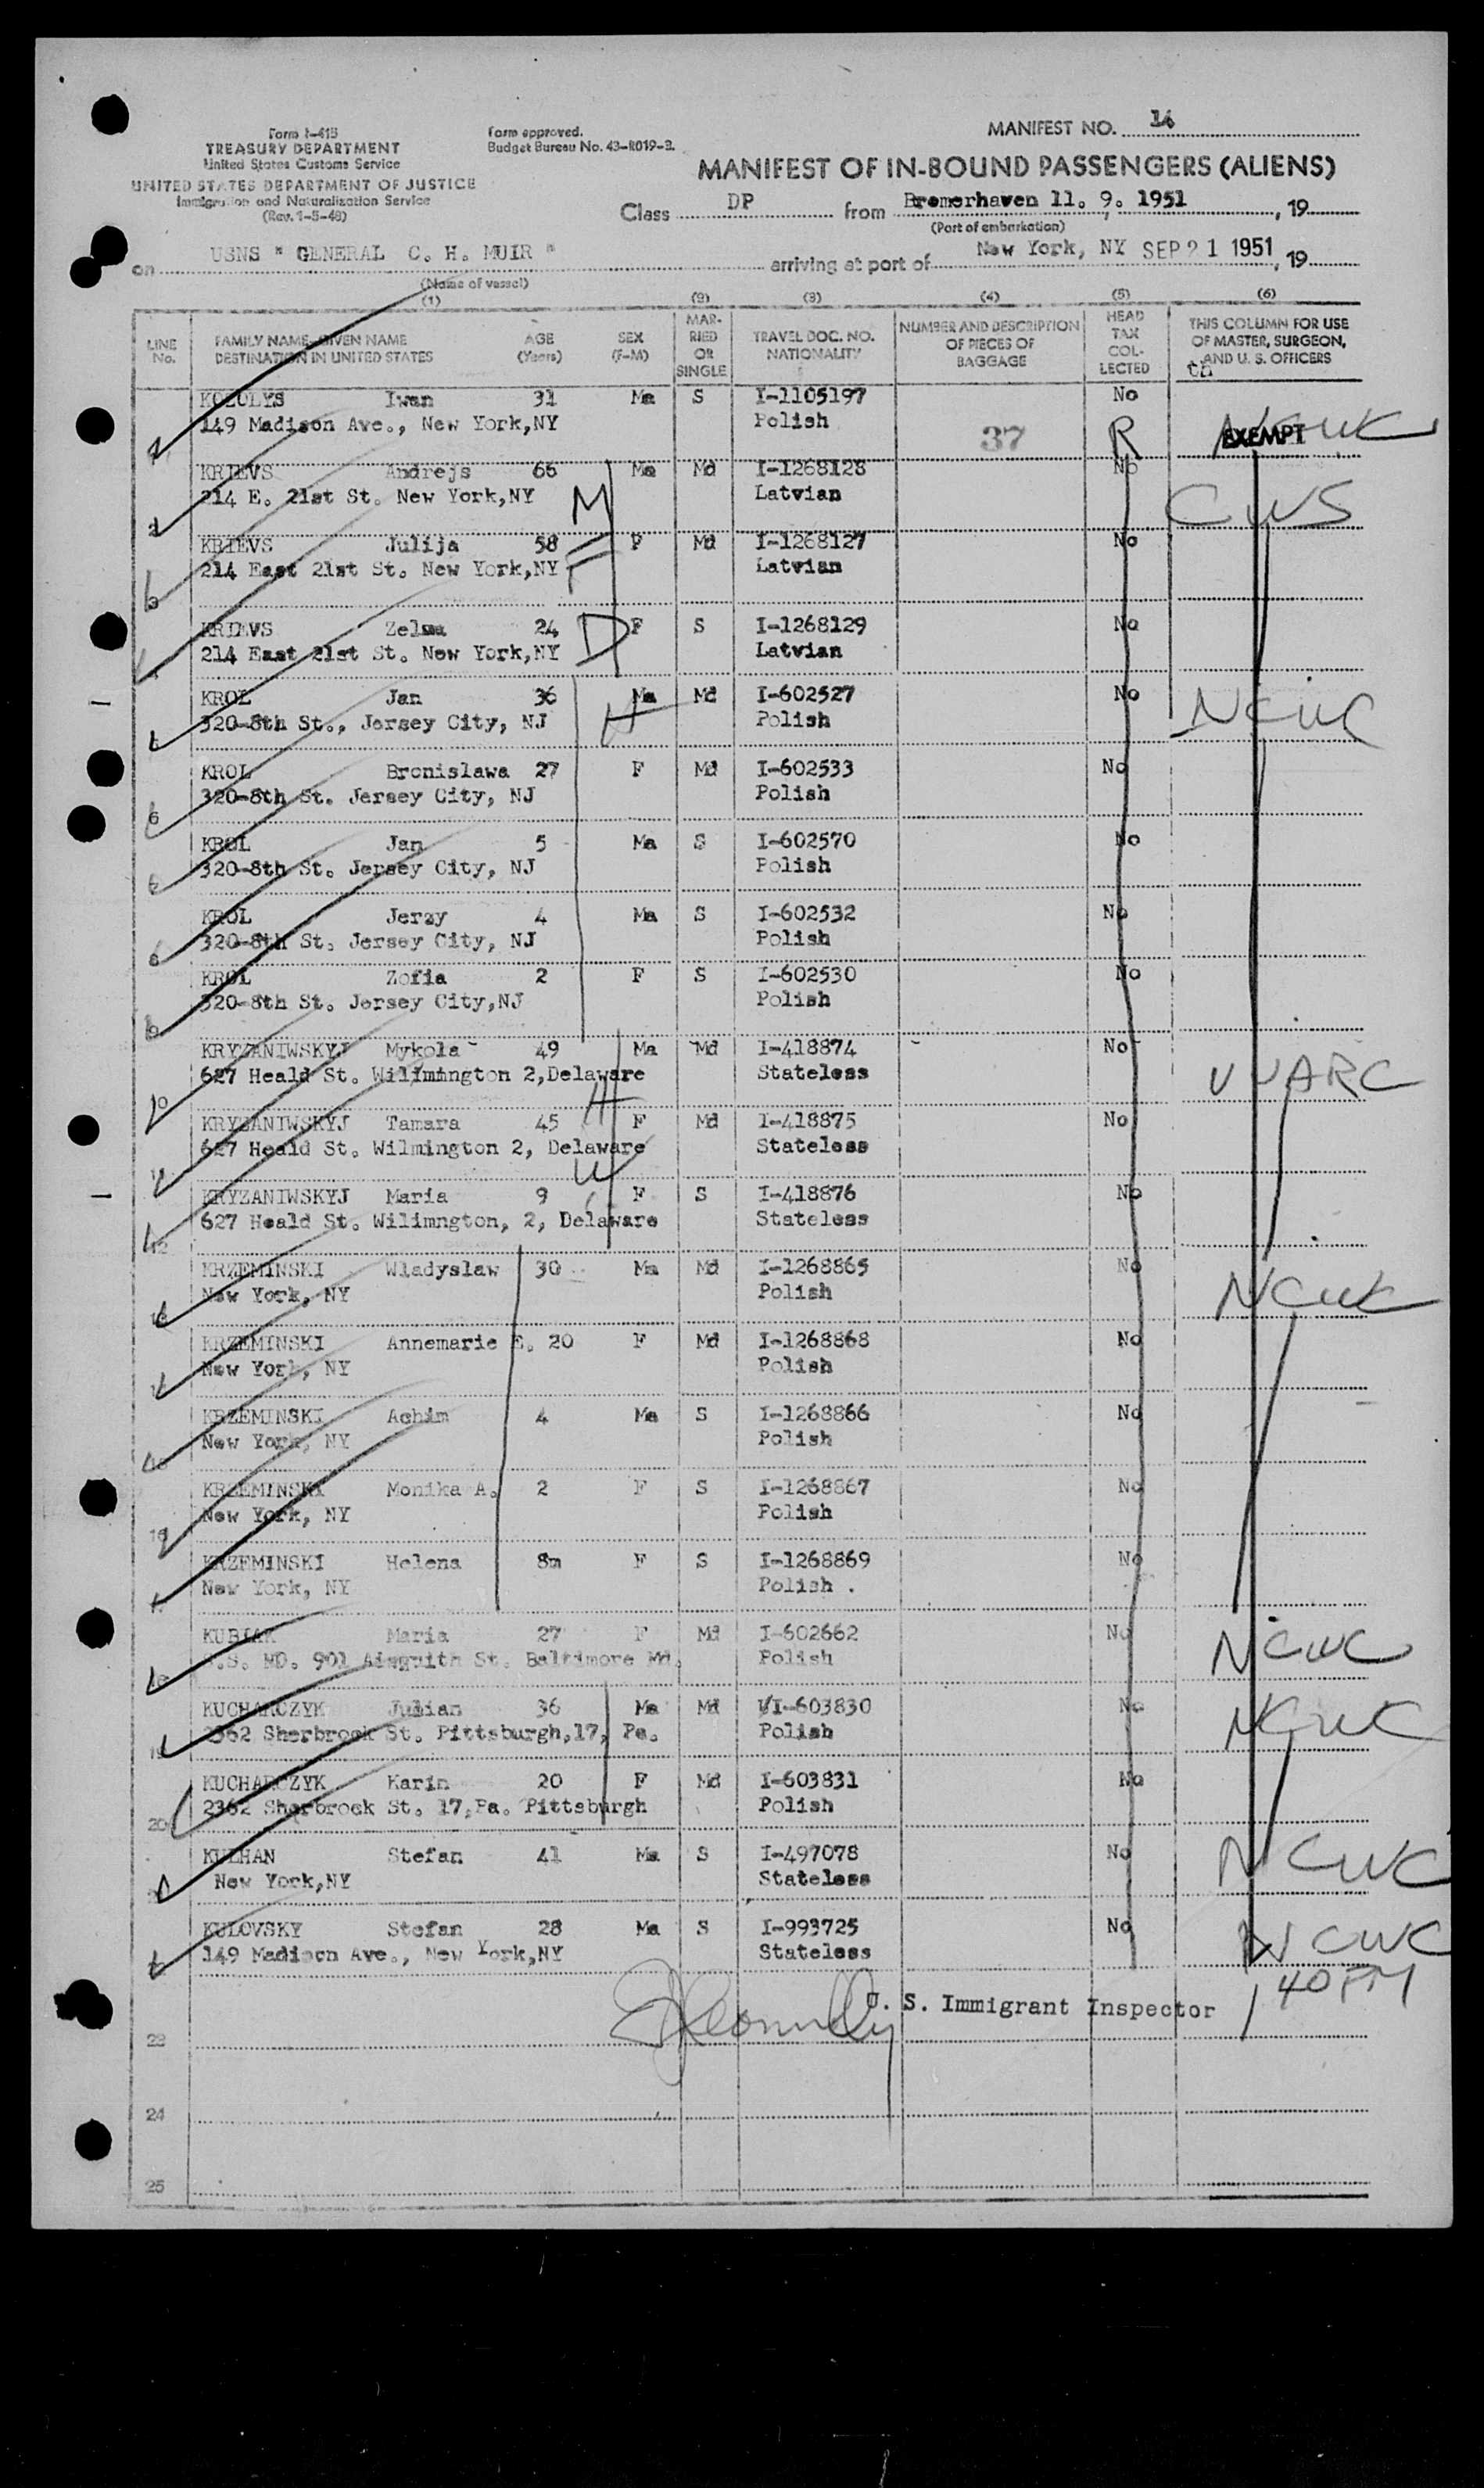 MANIFEST NO. 14
Form I-415
TREASURY DEPARTMENT
United States Customs Service
UNITED STATES DEPARTMENT OF JUSTICE
Immigration and Naturalization Service
(Rev. 1-5-48)
Form approved.
Budget Bureau No. 43-R019-2.
MANIFEST OF IN-BOUND PASSENGERS (ALIENS)
Class DP from Bremerhaven 11. 9. 1951, 19
(Port of embarkation)
on USNS " GENERAL C. H. MUIR " arriving at port of New York, NY SEP 21 1951, 19
(Name of vessel)
(1) (2) (3) (4) (5) (6)
LINE No. FAMILY NAME-GIVEN NAME DESTINATION IN UNITED STATES AGE (Years) SEX (F-M) MARRIED OR SINGLE TRAVEL DOC. NO. NATIONALITY NUMBER AND DESCRIPTION OF PIECES OF BAGGAGE HEAD TAX COLLECTED THIS COLUMN FOR USE OF MASTER, SURGEON, AND U. S. OFFICERS
Iwan 31 Ma S I-1105197 No
149 Madison Ave., New York,NY Polish 37 R EXEMPT
KRIEVS Andrejs 66 Ma Md I-1268128 No
2 214 E. 21st St. New York,NY M Latvian CWS
KRIEVS Julija 58 F Md I-1268127 No
3 214 East 21st St. New York,NY F Latvian
KRIEVS Zelma 24 F S I-1268129 No
214 East 21st St. New York,NY D Latvian
KROL Jan 36 Ma Md I-602527 No
320-8th St., Jersey City, NJ H Polish NCWC
KROL Bronislawa 27 F Md I-602533 No
6 320-8th St. Jersey City, NJ Polish
KROL Jan 5 Ma S I-602570 No
320-8th St. Jersey City, NJ Polish
KROL Jerzy 4 Ma S I-602532 No
8 320-8th St. Jersey City, NJ Polish
KROL Zofia 2 F S I-602530 No
9 320-8th St. Jersey City,NJ Polish
KRYZANIWSKYJ Mykola 49 Ma Md I-418874 No
10 627 Heald St. Wilimington 2,Delaware Stateless UUARC
KRYZANIWSKYJ Tamara 45 H F Md I-418875 No
627 Heald St. Wilmington 2, Delaware W Stateless
KRYZANIWSKYJ Maria 9 F S I-418876 No
12 627 Heald St. Wilimngton, 2, Delaware Stateless
KRZEMINSKI Wladyslaw 30 Ma Md I-1268865 No
New York, NY Polish NCWC
KRZEMINSKI Annemarie E. 20 F Md I-1268868 No
New York, NY Polish
KRZEMINSKI Achim 4 Ma S I-1268866 No
New York, NY Polish
KRZEMINSKI Monika A. 2 F S I-1268867 No
16 New York, NY Polish
KRZEMINSKI Helena 8m F S I-1268869 No
New York, NY Polish .
KUBIAK Maria 27 F Md I-602662 No
18 901 Aisquith St. Baltimore Md. Polish NCWC
KUCHARCZYK Julian 36 Ma Md I-603830 No
19 2362 Sherbrook St. Pittsburgh,17, Pa. Polish NCWC
KUCHARCZYK Karin 20 F Md I-603831 No
20 2362 Sherbrook St. 17,Pa. Pittsburgh Polish
Stefan 41 Ma S I-497078 No
New York,NY Stateless NCWC
KULOVSKY Stefan 28 Ma S I-993725 No
149 Madison Ave., New York,NY Stateless NCWC
U. S. Immigrant Inspector
23
24
25